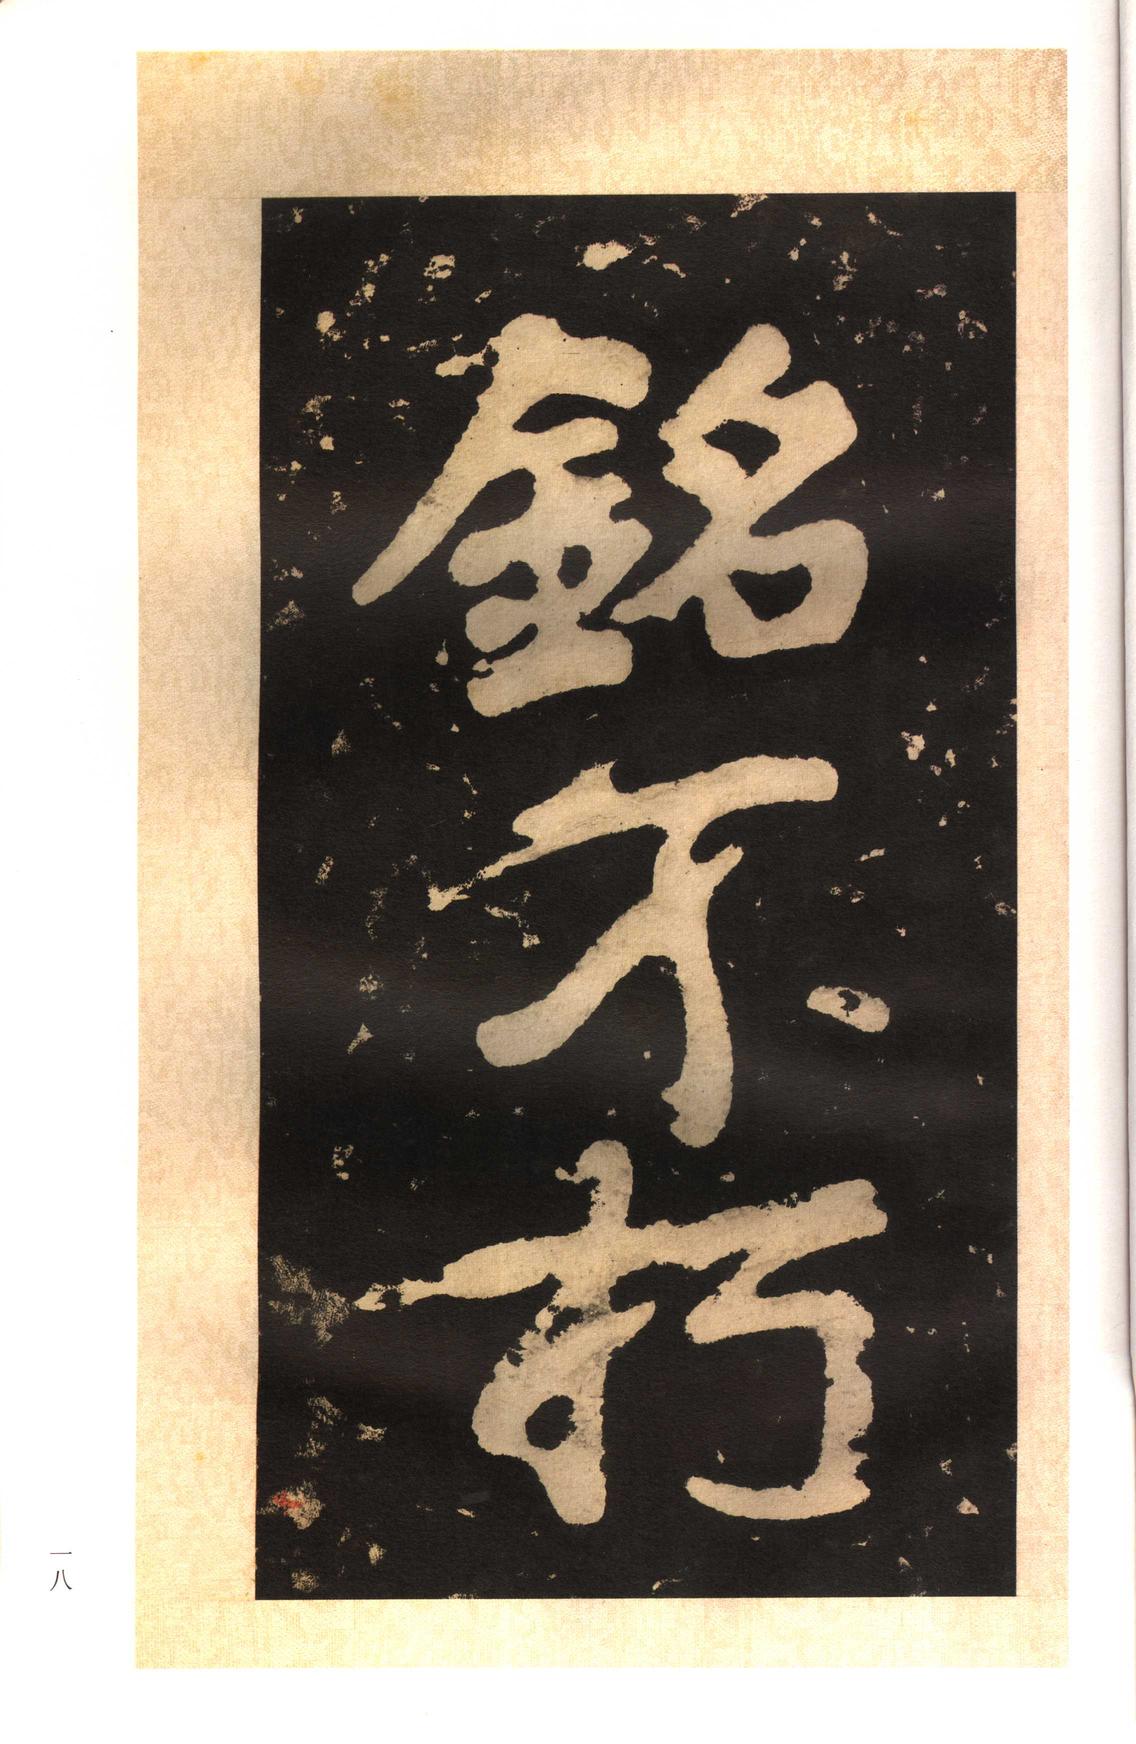 銘不朽
一八